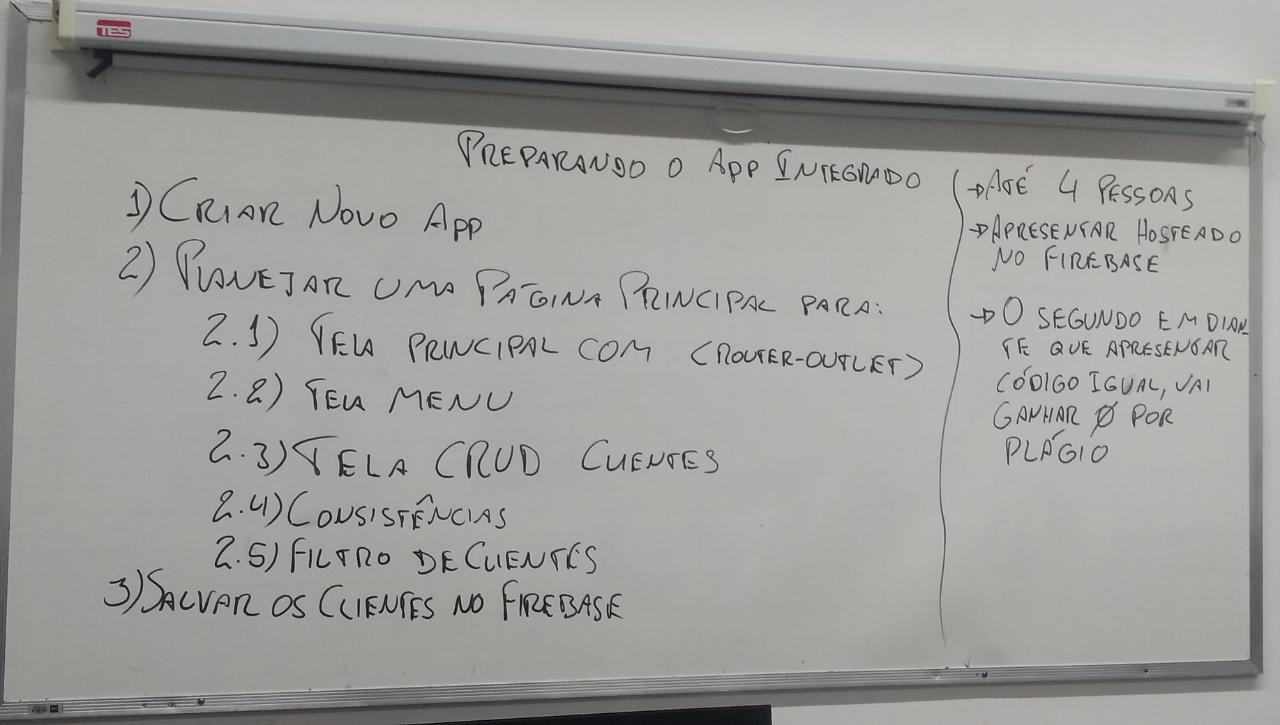 TES
PREPARANDO O APP INTEGRADO
1) CRIAR NOVO APP
2) PLANEJAR UMA PÁGINA PRINCIPAL PARA:
2.1) TELA PRINCIPAL COM <ROUTER-OUTLET>
2.2) TELA MENU
2.3) TELA CRUD CLIENTES
2.4) CONSISTÊNCIAS
2.5) FILTRO DE CLIENTES
3) SALVAR OS CLIENTES NO FIREBASE
→ ATÉ 4 PESSOAS
→ APRESENTAR HOSTEADO
NO FIREBASE
→ O SEGUNDO EM DIAN
TE QUE APRESENTAR
CÓDIGO IGUAL, VAI
GANHAR 0 POR
PLÁGIO